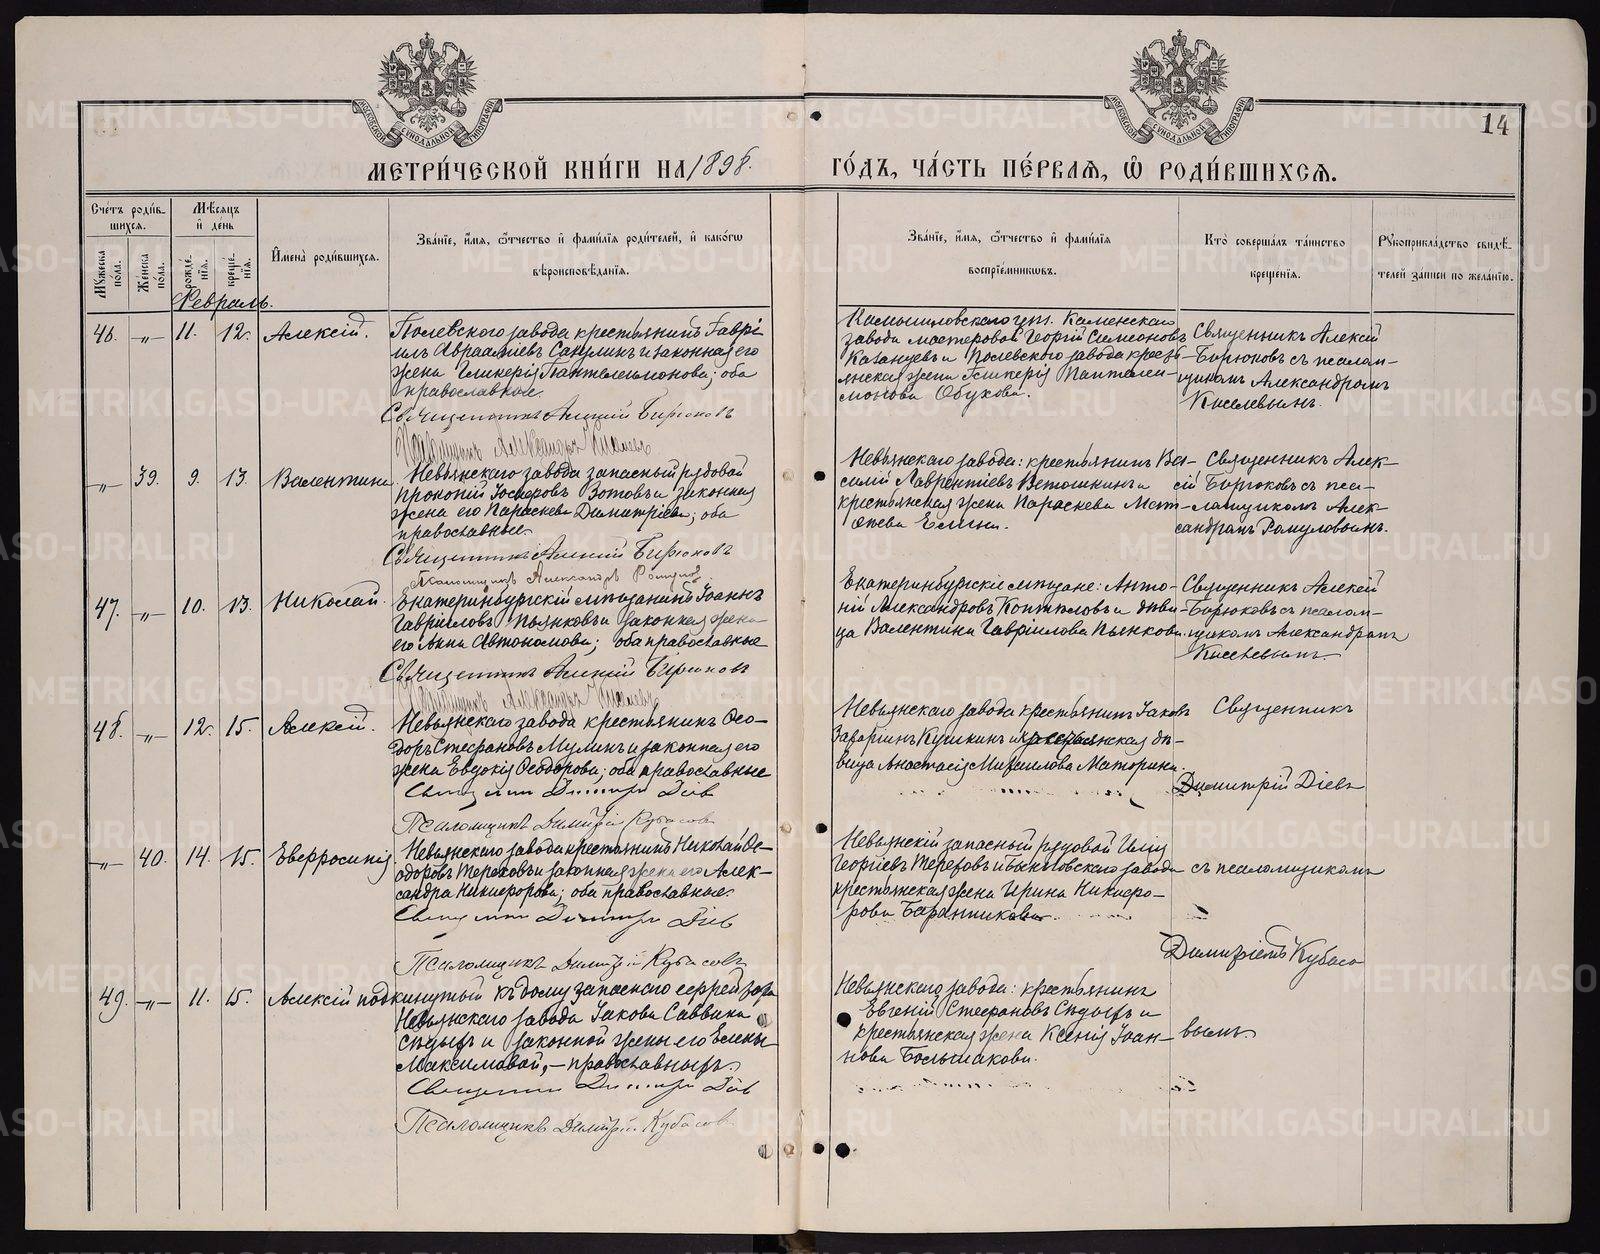 МОСКОВСКОЙ СѴНОДАЛЬНОЙ ТИПОГРАФІИ
МОСКОВСКОЙ СѴНОДАЛЬНОЙ ТИПОГРАФІИ
14
МЕТРИ́ЧЕСКОЙ КНИ́ГИ НА 1898. ГО́ДЪ, ЧА́СТЬ ПЕ́РВАѦ, Ѡ҆ РОДИ́ВШИХСѦ.
Сче́тъ роди́в-
шихсѧ.
Мѣ́сѧцъ
и҆ де́нь
Мꙋ́жеска по́ла.
Же́нска по́ла.
рожде́-нїѧ.
креще́-нїѧ.
И҆мена̀ роди́вшихсѧ.
Зва́нїе, и҆́мѧ, ѻ҆́тчество и҆ фами́лїѧ роди́телей, и҆ како́гѡ
вѣроисповѣ́данїѧ.
Зва́нїе, и҆́мѧ, ѻ҆́тчество и҆ фами́лїѧ
воспрїе́мникѡвъ.
Кто̀ соверша́лъ та́инство
креще́нїѧ.
Рꙋкоприкла́дство свидѣ́-
телей за́писи по жела́нїю.
Февраль.
46. -„- 11. 12. Алексій.
Полевского завода крестьянинъ Гаврі-
илъ Авраамiевъ и законная его
жена Гликерія Пантелеимонова; оба
православные.
Священникъ Алексій Бирюковъ
Псаломщикъ Александръ Киселевъ
Камышловскаго уѣз. Каменскаго
завода мастеровой Георгій Симеоновъ
Казанцевъ и Полевского завода кресть-
янская жена Гликерія Пантелеи-
монова Обухова.
Священникъ Алексій
Бирюковъ съ псалом-
щикомъ Александромъ
Киселевымъ.
-„- 39. 9. 13. Валентина.
Невьянскаго завода запасный рядовой
Прокопій Іосифовъ Зотовъ и законная
жена его Параскева Димитріева; оба
православные.
Священникъ Алексій Бирюковъ
Псаломщикъ Александръ
Невьянскаго завода: крестьянинъ Ва-
силій Лаврентіевъ Ветошкинъ и
крестьянская жена Параскева Мат-
ѳеева
Священникъ Алек-
сій Бирюковъ съ пса-
ломщикомъ Алек-
сандромъ Ромуловымъ.
47. -„- 10. 13. Николай.
Екатеринбургскій мѣщанинъ Іоаннъ
Гавріиловъ Пьянковъ и законная жена
его Анна Автономова; оба православные
Священникъ Алексій Бирюковъ
Псаломщикъ Александръ Киселевъ
Екатеринбургскіе мѣщане: Анто-
ній Александровъ Коптяловъ и дѣви-
ца Валентина Гавріилова Пьянкова.
Священникъ Алексій
Бирюковъ съ псалом-
щикомъ Александромъ
Киселевымъ.
48. -„- 12. 15. Алексій.
Невьянскаго завода крестьянинъ Ѳео-
доръ Стефановъ Мулинъ и законная его
жена Евдокія Ѳеодорова; оба православные
Священникъ Димитрій Діевъ
Псаломщикъ Димитрій Кубасовъ
Невьянскаго завода крестьянинъ Іаковъ
Захаріинъ Кушкинъ и крестьянская дѣ-
вица Анастасія Михаилова Маторина.
Священникъ
Димитрій Діевъ
-„- 40. 14. 15. Евфросинія.
Невьянскаго завода крестьянинъ Николай Ѳе-
одоровъ Тереховъ и законная жена его Алек-
сандра Никифорова; оба православные.
Священникъ Димитрій Діевъ
Псаломщикъ Димитрій Кубасовъ
Невьянскій запасный рядовой Илія
Георгіевъ Тереховъ и Быньговскаго завода
крестьянская жена Ирина Никифо-
рова Баранникова.
съ псаломщикомъ
Димитріемъ Кубасо-
49. -„- 11. 15. Алексій подкинутый къ дому запаснаго ефрейтора
Невьянскаго завода Іакова Саввина
Сѣдыхъ и законной жены его Елены
Максимовой, – православныхъ.
Священникъ Димитрій Діевъ
Псаломщикъ Димитрій Кубасовъ
Невьянскаго завода: крестьянинъ
Евгеній Стефановъ Сѣдыхъ и
крестьянская жена Ксенія Іоан-
нова Большакова.
вымъ.
METRIKI.GASO-URAL.RU